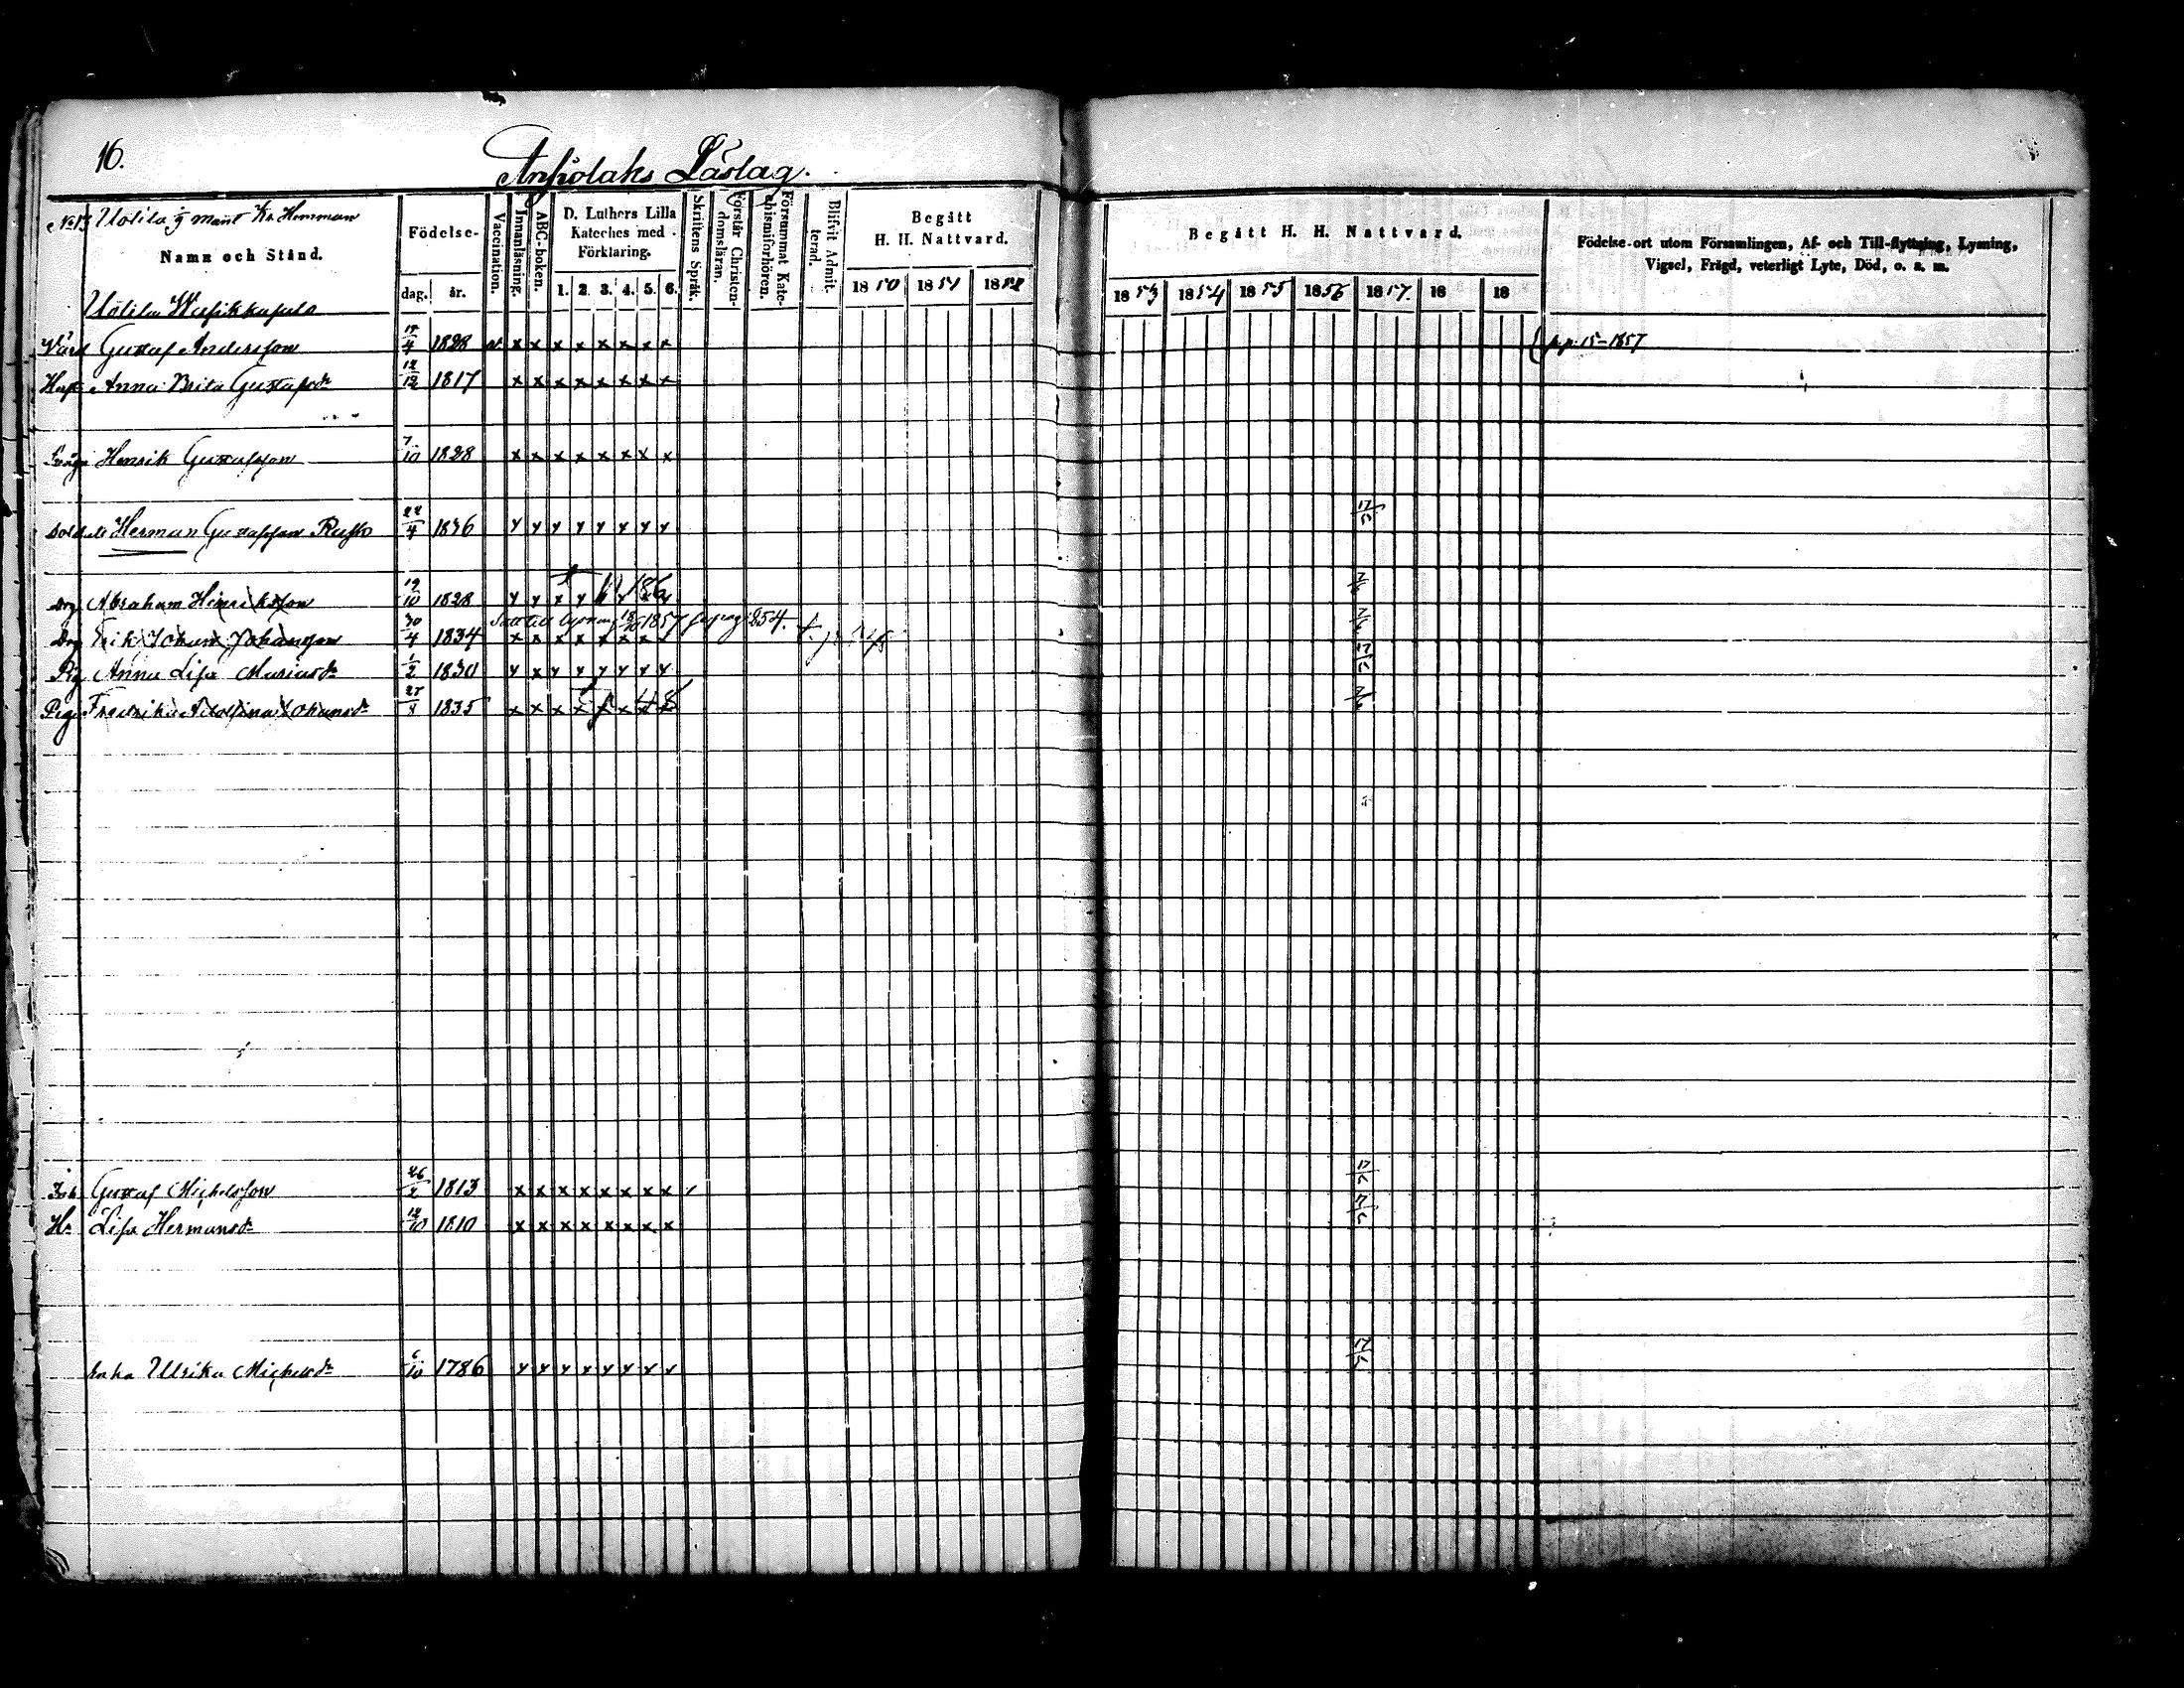 16.
Anjiolaks Låslag.
No 13 Uotila mant Kr. Hemman
Namn och Stånd.
Födelse-
dag. år.
Vaccination.
Innanläsning.
ABC-boken.
D. Luthers Lilla
Kateches med
Förklaring.
1. 2. 3. 4. 5. 6.
Skriftens Språk.
Förstår Christen-
domsläran.
Försummat Kate-
chismiförhören.
Blifvit Admit-
terad.
Begått
H. H. Nattvard.
1850 1851 1852
Begått H. H. Nattvard.
1853 1854 1855 1856 1857. 18 18
Födelse-ort utom Församlingen, Af- och Till-flyttning, Lysning,
Vigsel, Frägd, veterligt Lyte, Död, o. s. m.
Uotila
Gustaf Andersson 1828 x x x x x x x x p. 15-1857
Anna Brita Gustafsdr 12/12 1817 x x x x x x x x
Henrik Gustafsson 7/10 1828 x x x x x x x x
Herman Gustafsson 22/4 1836 y y y y y y y y
Drg Abraham Henriksson 19/10 1828
1857 254.
Drg Erik Johan Johansson 30/4 1834
Pig Anna Lisa Mariasdr 1/2 1830 y x y y y y y y
Pig Fredrika Johansdr 1835
Gustaf Michelsson 26/2 1813 x x x x x x x x
Hu Lisa Hermansdr 12/10 1810 x x x x x x x x
Enka Ulrika Michelsdr 6/10 1786 y y y y y y y y